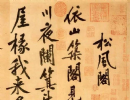 松風閣
依山築閣見
川夜闌箕斗
屋椽我来